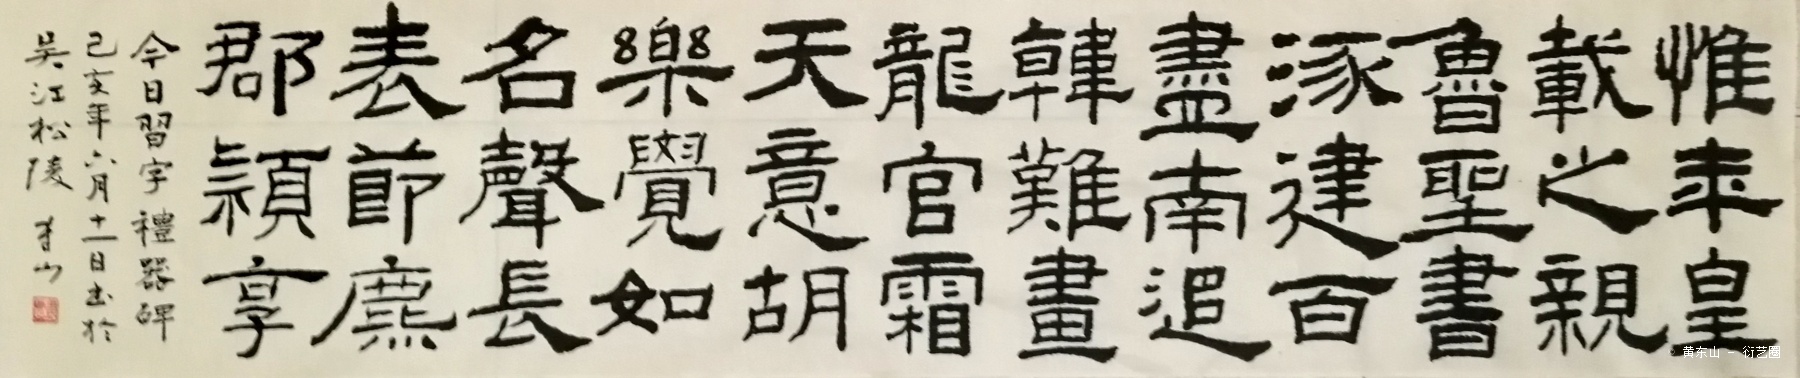 惟年皇
載之親
魯聖書
涿建百
盡南追
韓難畫
龍官霜
天意胡
樂覺如
名聲長
表節廡
郡潁享
今日習字禮器碑
己亥年六月十一日書於
吴江松陵 東山
黄东山 - 衍艺圈